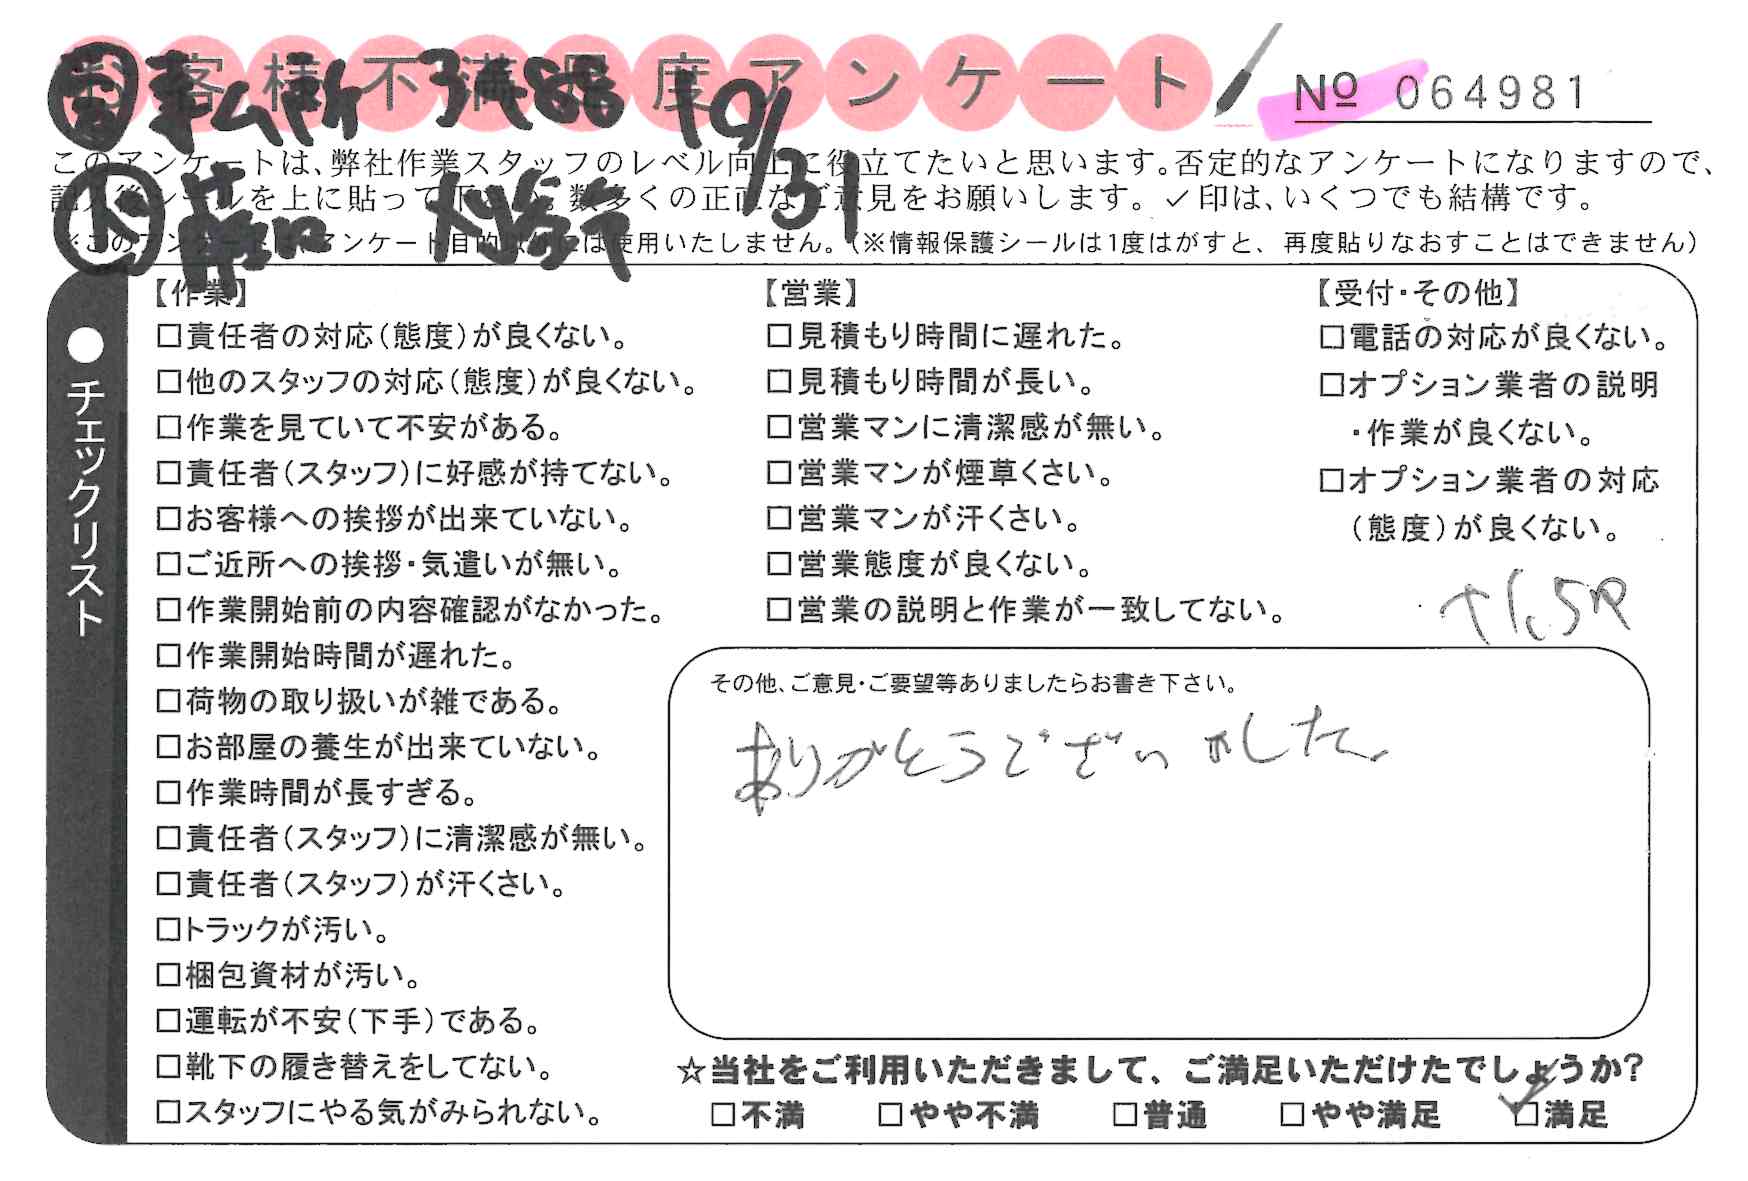 お客様不満足度アンケート
№ 064981
10/31
このアンケートは、弊社作業スタッフのレベル向上に役立てたいと思います。否定的なアンケートになりますので、
記入後シールを上に貼って下さい。数多くの正直なご意見をお願いします。✓印は、いくつでも結構です。
※このアンケートは、アンケート目的以外には使用いたしません。(※情報保護シールは1度はがすと、再度貼りなおすことはできません)
●チェックリスト
【作業】
□責任者の対応(態度)が良くない。
□他のスタッフの対応(態度)が良くない。
□作業を見ていて不安がある。
□責任者(スタッフ)に好感が持てない。
□お客様への挨拶が出来ていない。
□ご近所への挨拶・気遣いが無い。
□作業開始前の内容確認がなかった。
□作業開始時間が遅れた。
□荷物の取り扱いが雑である。
□お部屋の養生が出来ていない。
□作業時間が長すぎる。
□責任者(スタッフ)に清潔感が無い。
□責任者(スタッフ)が汗くさい。
□トラックが汚い。
□梱包資材が汚い。
□運転が不安(下手)である。
□靴下の履き替えをしてない。
□スタッフにやる気がみられない。
【営業】
□見積もり時間に遅れた。
□見積もり時間が長い。
□営業マンに清潔感が無い。
□営業マンが煙草くさい。
□営業マンが汗くさい。
□営業態度が良くない。
□営業の説明と作業が一致してない。
【受付・その他】
□電話の対応が良くない。
□オプション業者の説明
・作業が良くない。
□オプション業者の対応
(態度)が良くない。
その他、ご意見・ご要望等ありましたらお書き下さい。
ありがとうございました。
☆当社をご利用いただきまして、ご満足いただけたでしょうか?
□不満 □やや不満 □普通 □やや満足 ☑満足